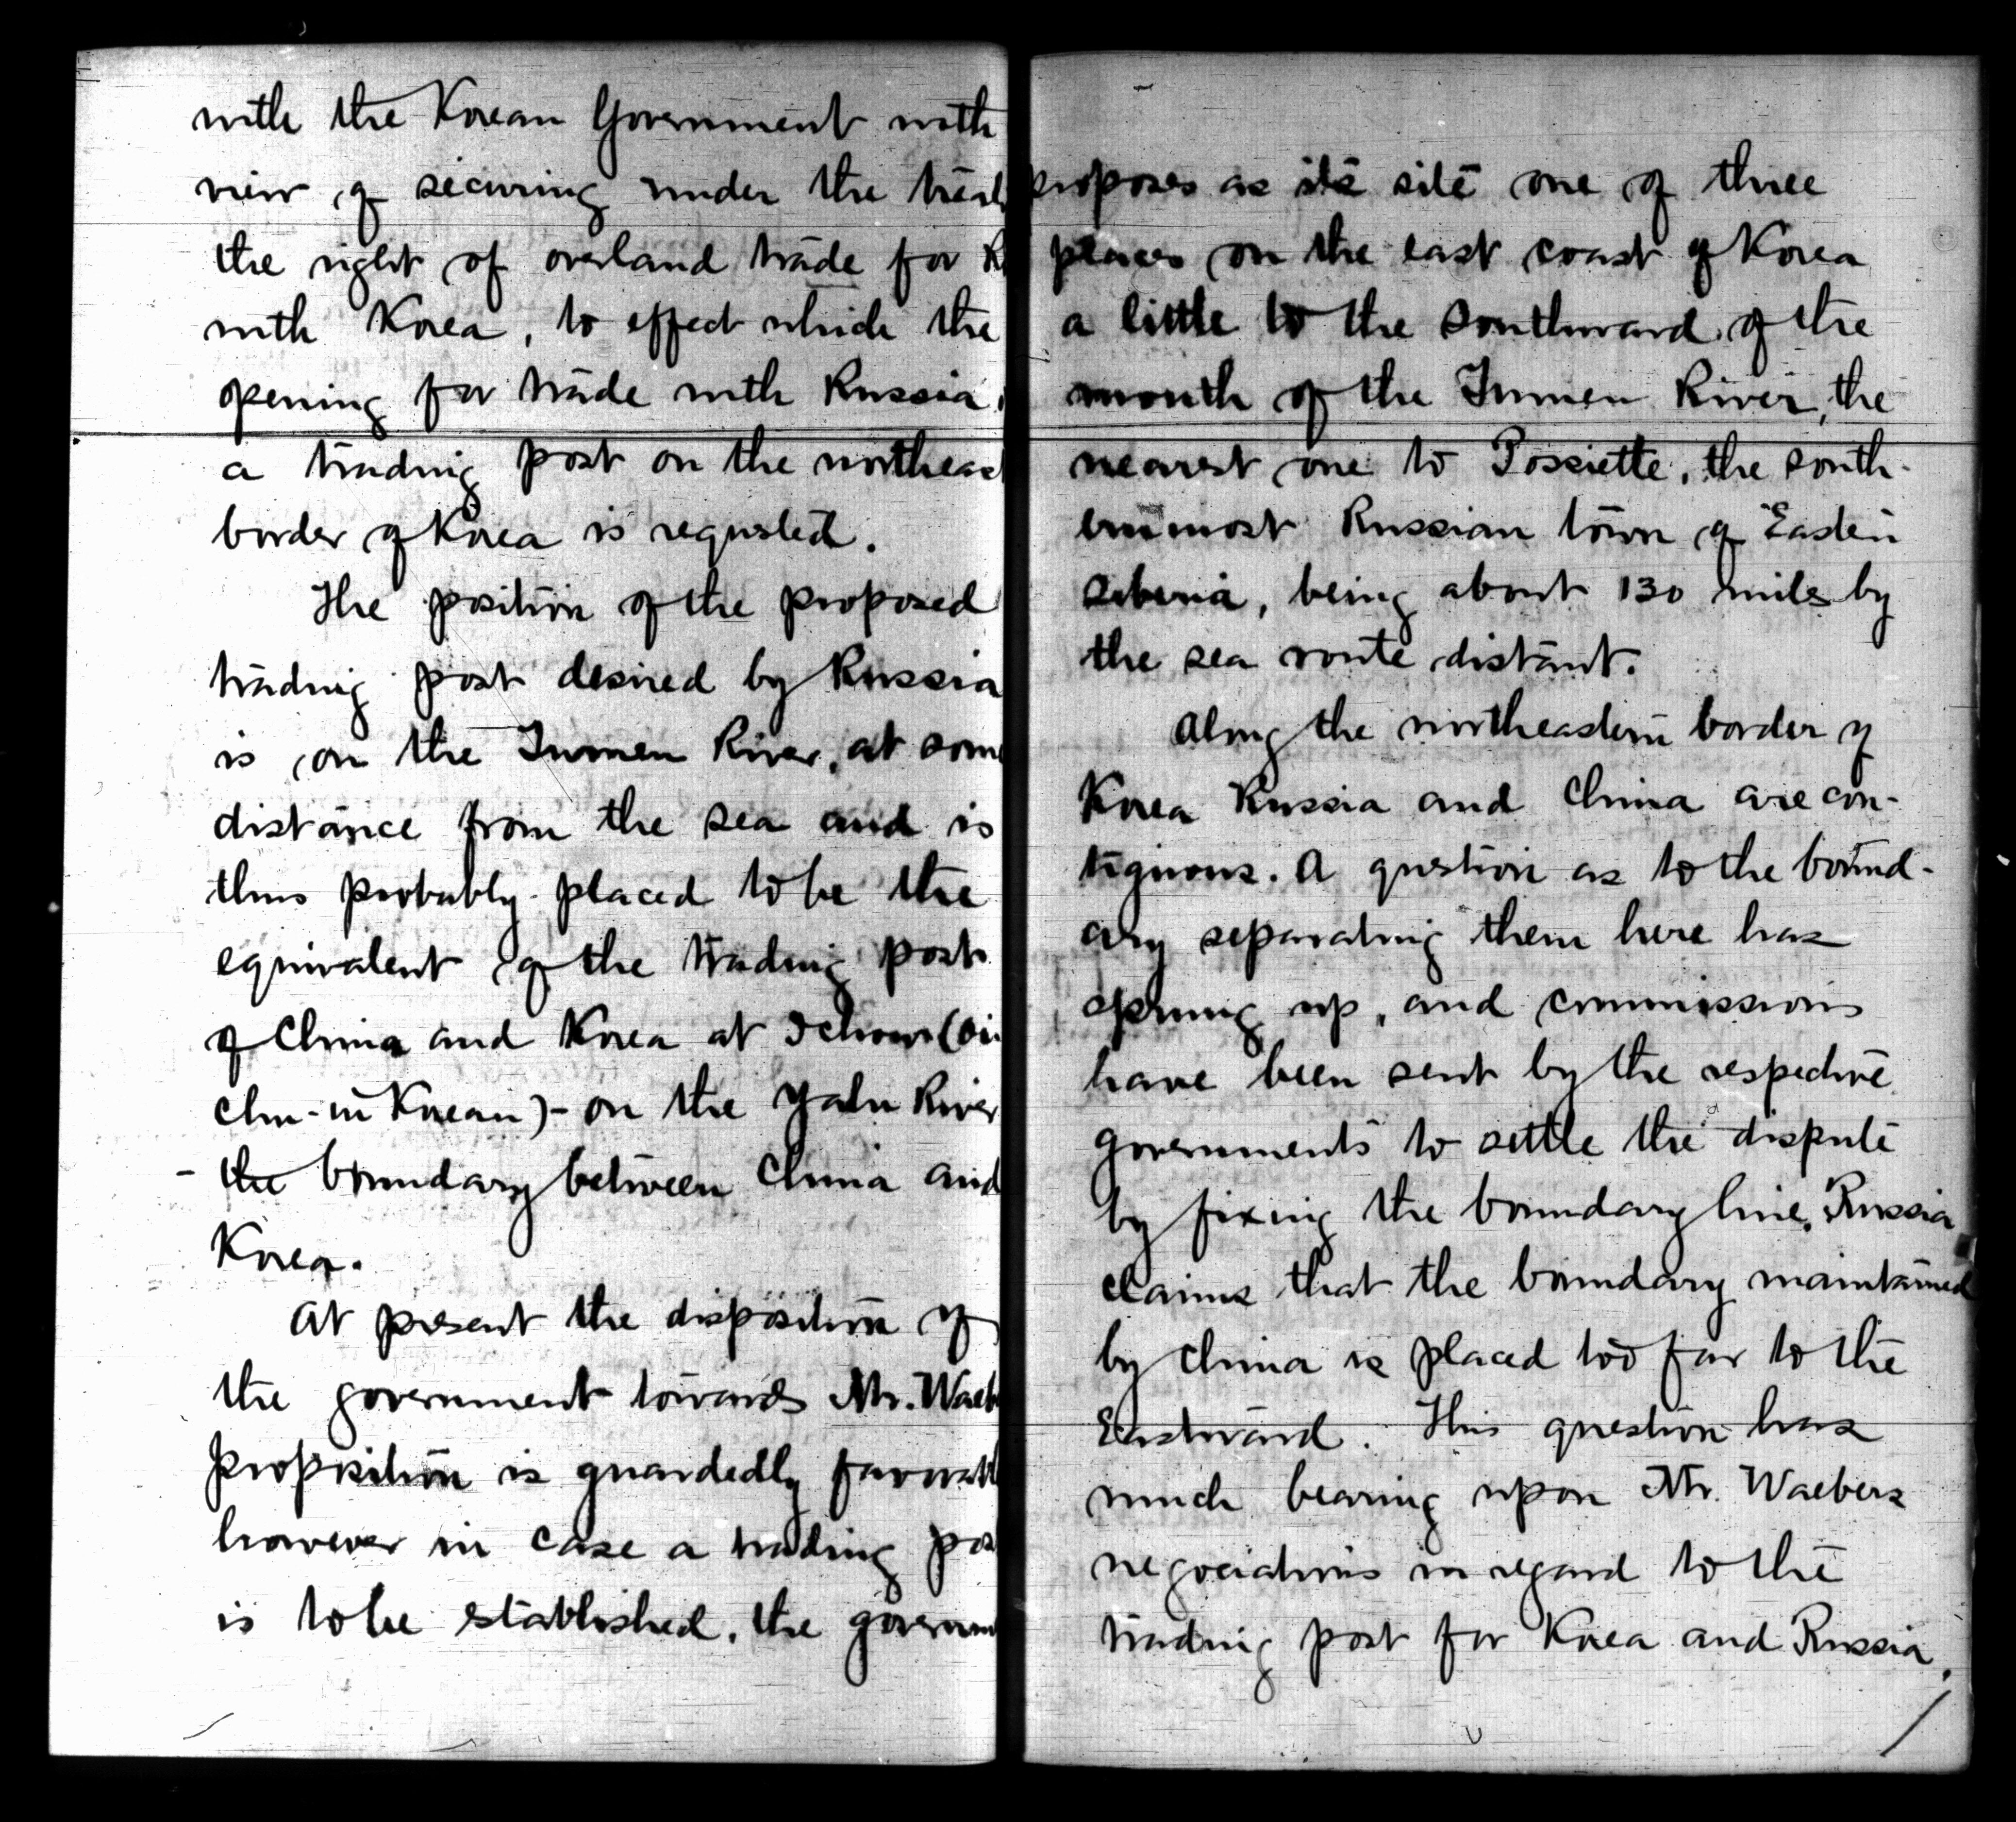 with the Korean Government with
view of securing under the treat
the right of overland trade for R
with Korea, to effect which the
opening for trade with Russia,
a trading post on the northeast
border of Korea is requested.
The position of the proposed
trading post desired by Russia
is on the Tumen River, at some
distance from the sea and is
thus probably placed to be the
equivalent of the trading post
of China and Korea at Ichow (Oi-
chu - in Korean) - on the Yalu River
- the boundary between China and
Korea.
At present the disposition of
the government towards Mr. Waeb
proposition is guardedly favorabl
however in case a trading pos
is to be established, the governm
proposes as its site one of three
places on the east coast of Korea
a little to the Southward of the
mouth of the Tumen River, the
nearest one to Possiette, the south-
ernmost Russian town of Eastern
Siberia, being about 130 miles by
the sea route distant.
Along the northeastern border of
Korea Russia and China are con-
tiguous. A question as to the bound-
ary separating them here has
sprung up, and commissions
have been sent by the respective
governments to settle the dispute
by fixing the boundary line, Russia
claims that the boundary maintained
by China is placed too far to the
Eastward. This question has
much bearing upon Mr. Waebers
negociations in regard to the
trading post for Korea and Russia,